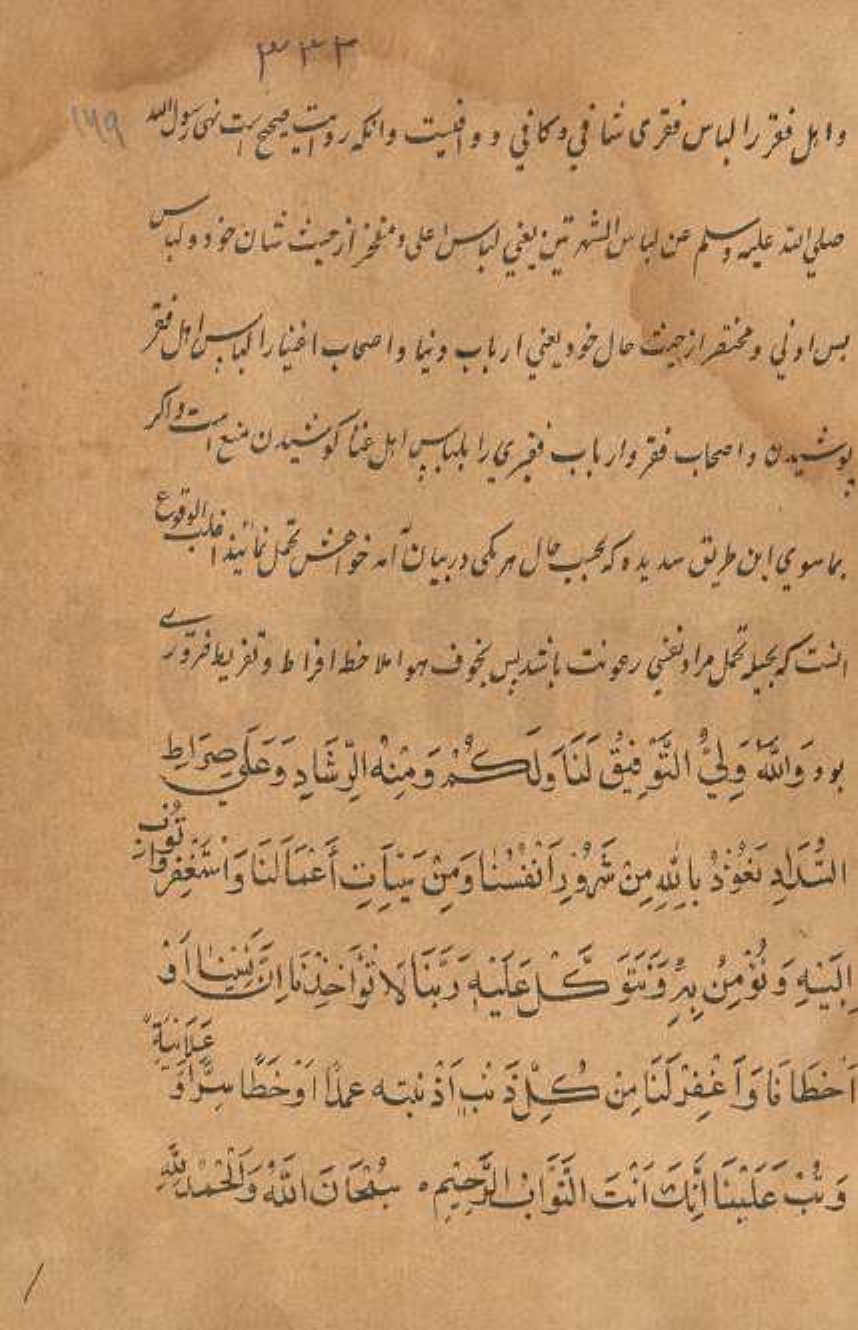 ۳۳۲
۱۶۹
و اهل فقر را لباس فقری شافی و کافی و وافیست وانکه روایت صحیح است نهی رسول الله
صلی الله علیه وسلم عن لباس الشهرتین یعنی لباس اعلی و مفخر از حیث شان خود و لباس
بس ادنی و مختصر از حیث حال خود یعنی ارباب دنیا و اصحاب اغنیا را لباس اهل فقر
پوشیدن و اصحاب فقر و ارباب فقیری را بلباس اهل غنا کوشیدن منع است و اکر
بماسوی این طریق سدیده که بحسب حال هر یکی در بیان آمد خواهش تحمل نمایند اغلب الوقوع
انست که بحیله تحمل مراد نفسی رعونت باشد پس بخوف هوا ملاحظه افراط و تفریط ضروری
بود وَاللّٰهُ وَلِيُّ التَّوْفِيقِ لَنَا وَلَكُمْ وَمِنْهُ الرَّشَادِ وَعَلَى صِرَاطِ
السَّدَادِ نَعُوْذُ بِاللّٰهِ مِنْ شَرُوْرِ اَنْفُسِنَا وَمِنْ سَيِّاٰتِ أَعْمَالَنَا وَاَسْتَغْفِرُ وَاتُوْبُ
اِلَيْهِ وَنُؤْمِنُ بِهٖ وَنَتَوَكَّلُ عَلَيْهِ رَبَّنَا لَا تُؤَاخِذْنَا اِنْ نَسِيْنَا اَوْ
اَخْطَانَا وَاَغْفِرْ لَنَا مِنْ كُلِّ ذَنْبٍ اَذْنبته عمدًا اَوْ خَطًا سِرًّا وَّ عَلَانِيَةً
وَتُبْ عَلَيْنَا اِنَّكَ اَنْتَ التَّوَّابُ الرَّحِيْمِ ه سُبْحَانَ اللّٰهُ وَالْحَمْدُ لِلّٰهِ